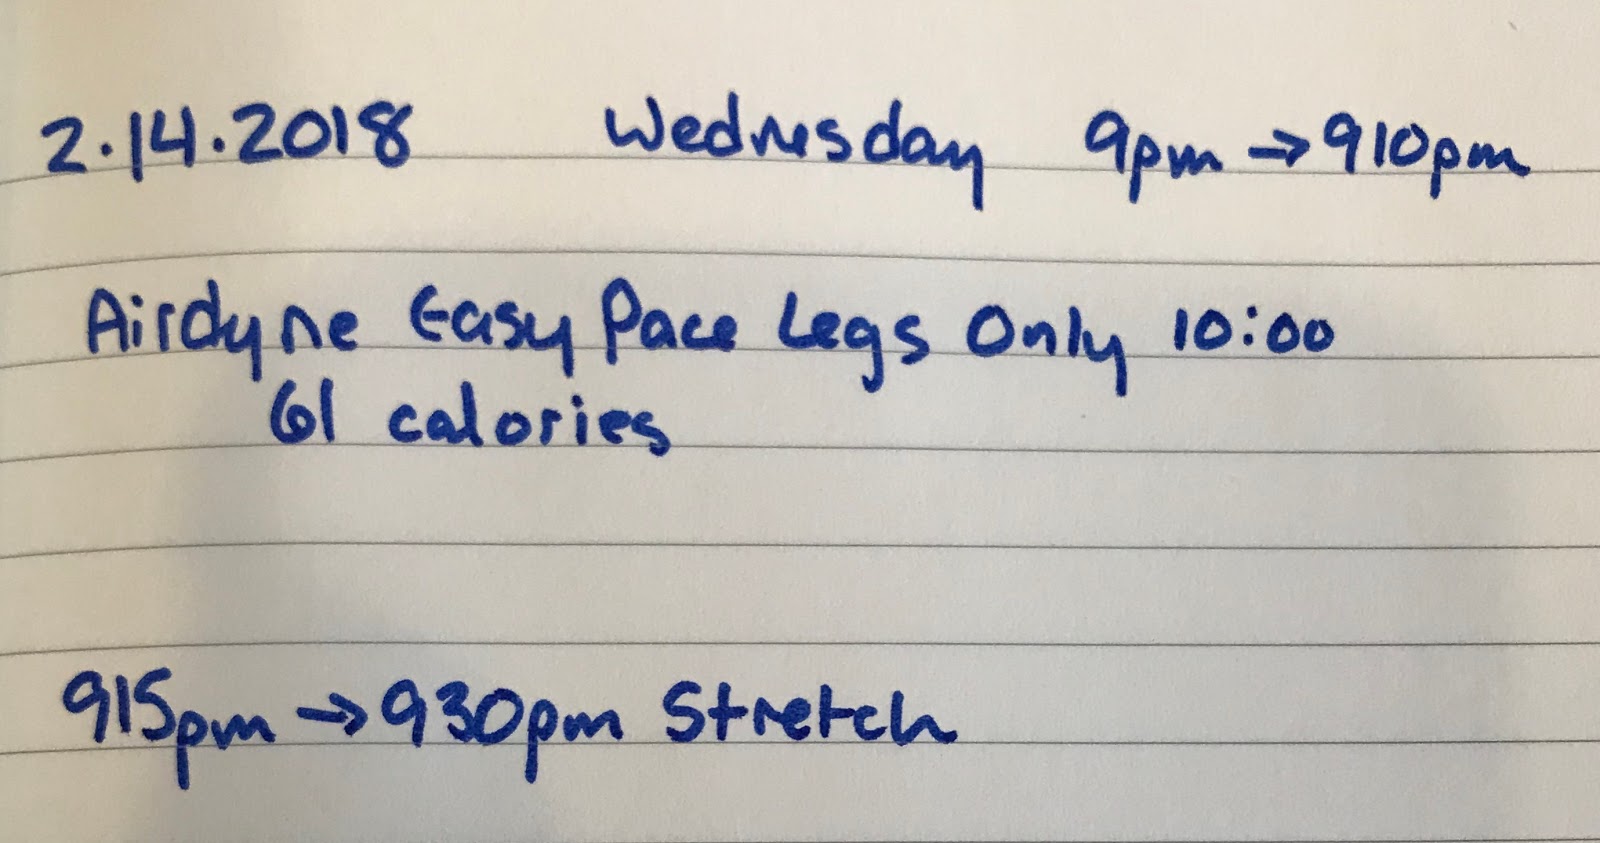 2.14.2018 Wednesday 9pm → 910pm
Airdyne Easy Pace Legs Only 10:00
61 calories
915pm → 930pm Stretch